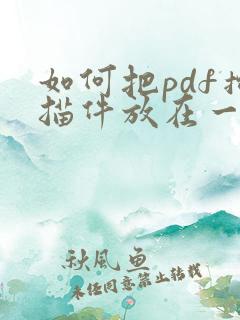 如何把pdf扫
描件放在一
秋风鱼
未经同意禁止转载